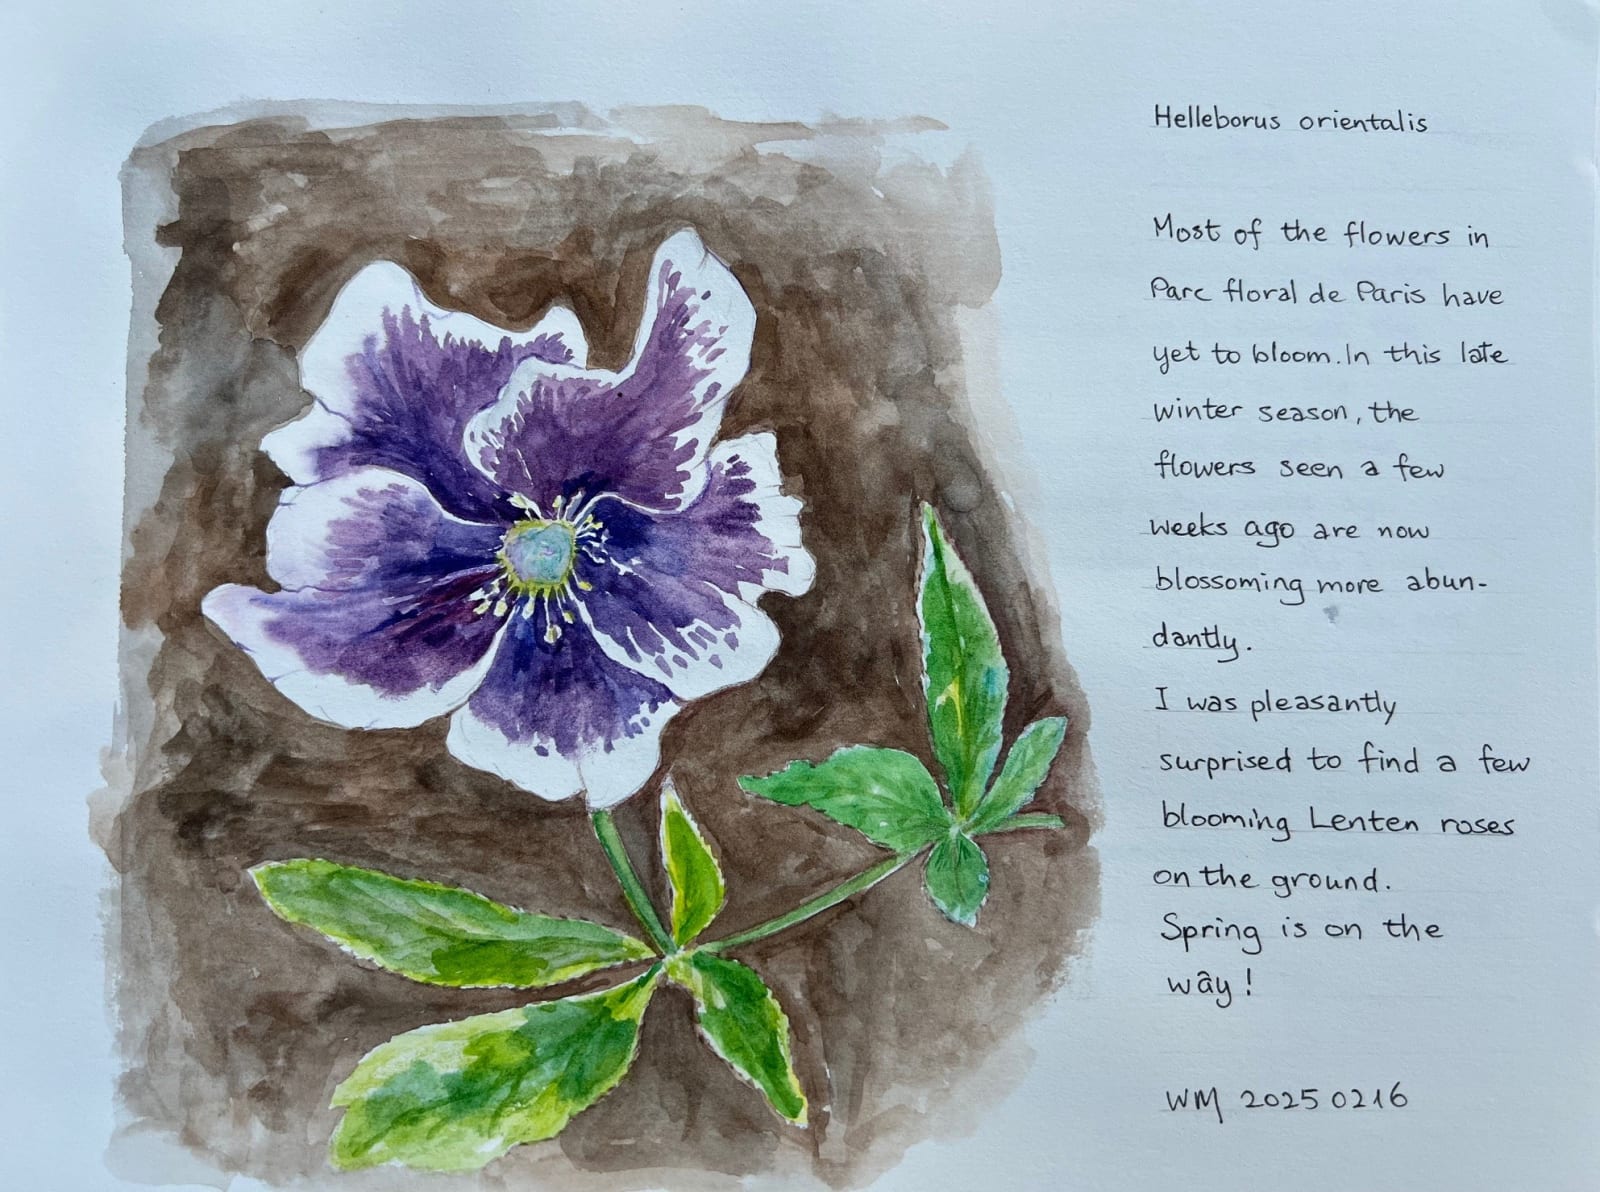 Helleborus orientalis
Most of the flowers in
Parc floral de Paris have
yet to bloom. In this late
winter season, the
flowers seen a few
weeks ago are now
blossoming more abun-
dantly.
I was pleasantly
surprised to find a few
blooming Lenten roses
on the ground.
Spring is on the
wây!
WM 2025 0216